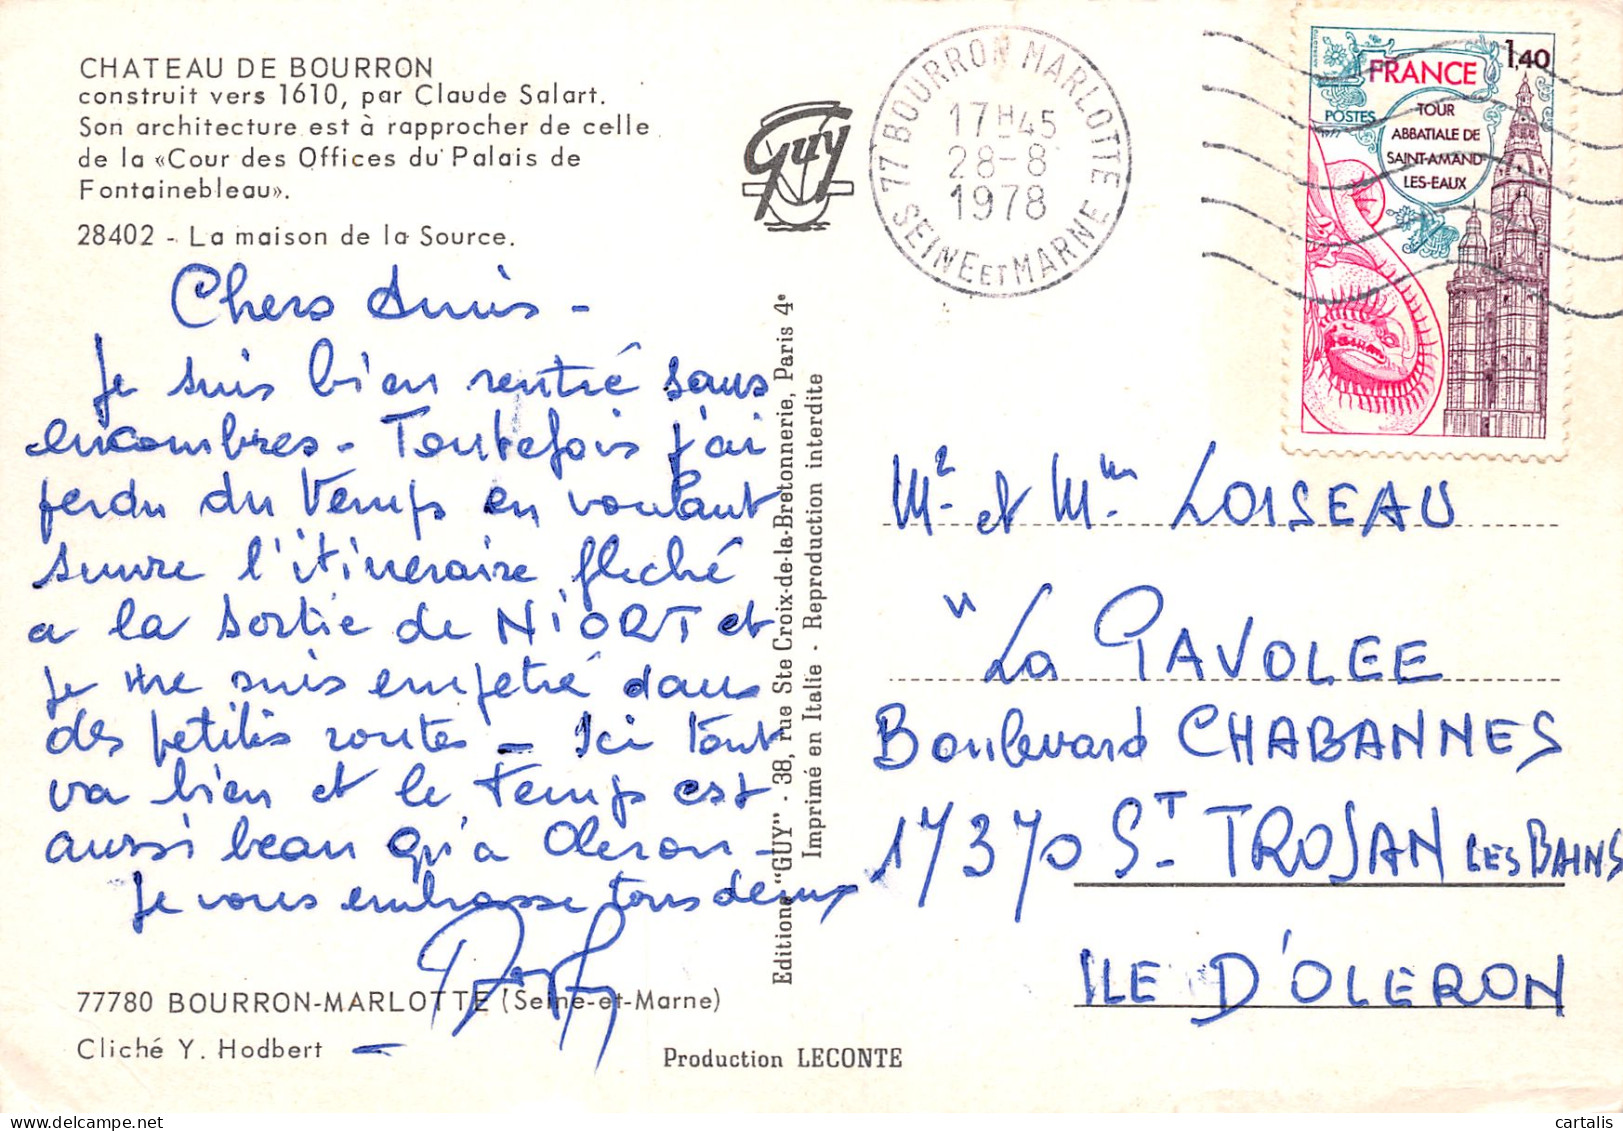 CHATEAU DE BOURRON
construit vers 1610, par Claude Salart.
Son architecture est à rapprocher de celle
de la «Cour des Offices du Palais de
Fontainebleau».
28402 - La maison de la Source.
Chers Amis -
Je suis bien rentré sans
encombres - Toutefois j'ai
perdu du temps en voulant
suivre l'itineraire fleché
a la sortie de NIORT et
je me suis empetré dans
des petites routes - Ici tout
va bien et le temps est
aussi beau qu'a Oleron -
Je vous embrasse tous deux
77780 BOURRON-MARLOTTE (Seine-et-Marne)
Cliché Y. Hodbert
Editions "GUY" - 38, rue Ste Croix-de-la-Bretonnerie, Paris 4e
Imprimé en Italie - Reproduction interdite
Guy
Production LECONTE
77 BOURRON MARLOTTE
17H45
28-8
1978
SEINE ET MARNE
FRANCE
1,40
POSTES
1977
TOUR
ABBATIALE DE
SAINT-AMAND
LES-EAUX
Mr et Mme LOISEAU
"La GAVOLEE
Boulevard CHABANNES
17370 ST TROJAN LES BAINS
ILE D'OLERON
cartalis